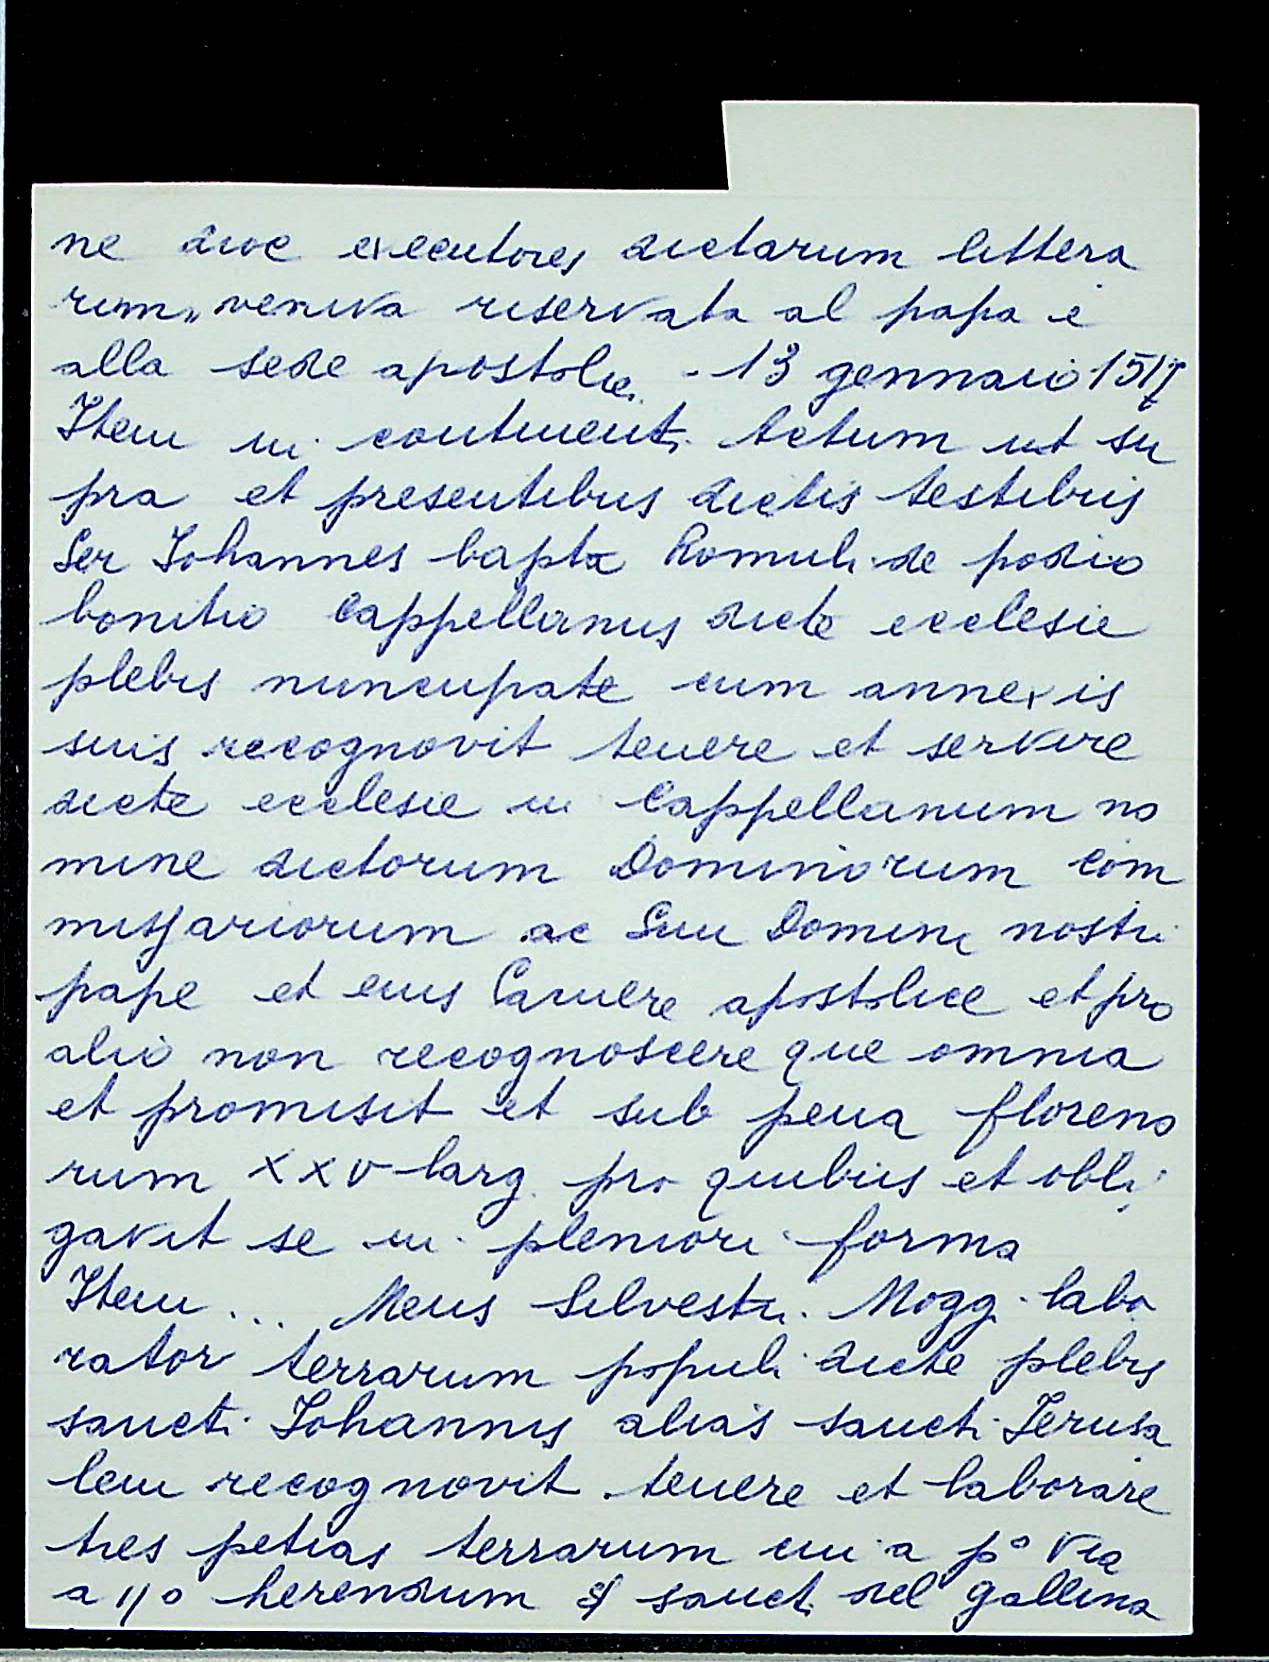 ne dioc executores dictarum littera
rum„ veniva riservata al papa e
alla sede apostolic. - 13 gennaio 1517
Item in continenti Actum ut su
pra et presentibus dictis testibus
Ser Iohannes bapta Romuli de podio
bonitio Cappellanus dicte ecclesie
plebis nuncupate cum annexis
suis recognovit tenere et servire
dicte ecclesie in Cappellanum no
mine dictorum Dominorum com
missariorum ac Domini nostri
pape et eius Camere apostolice et pro
alio non recognoscere que omnia
et promisit et sub pena floreno
rum XXV larg. pro quibus et obli
gavit se in pleniori forma
Item ... Meus Silvestri Mogg. labo
rator terrarum populi dicte plebis
sancti Iohannis alias sancti Ierusa
lem recognovit tenere et laborare
tres petias terrarum cui a pº via
a 11º herendum sancti del gallina